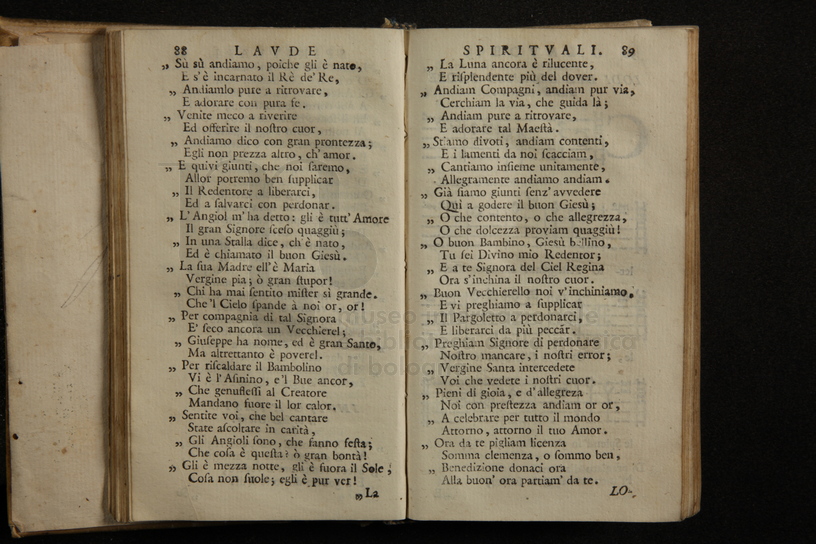 88 LAVDE
„ Sù sù andiamo, poiche gli è nato,
E s'è incarnato il Rè de' Re,
„ Andiamlo pure a ritrovare,
E adorare con pura fe.
„ Venite meco a riverire
Ed offerire il noſtro cuor,
„ Andiamo dico con gran prontezza;
Egli non prezza altro, ch'amor.
„ E quivi giunti, che noi ſaremo,
Allor potremo ben ſupplicar
„ Il Redentore a liberarci,
Ed a ſalvarci con perdonar.
„ L'Angiol m'ha detto: gli è tutt'Amore
Il gran Signore ſceſo quaggiù;
„ In una Stalla dice, ch'è nato,
Ed è chiamato il buon Giesù.
„ La ſua Madre ell'è Maria
Vergine pia; ò gran ſtupor!
„ Chi ha mai ſentito miſter sì grande.
Che'l Cielo ſpande à noi or, or!
„ Per compagnia di tal Signora
E' ſeco ancora un Vecchierel;
„ Giuſeppe ha nome, ed è gran Santo,
Ma altrettanto è poverel.
„ Per riſcaldare il Bambolino
Vi è l'Aſinino, e'l Bue ancor,
„ Che genufleſſi al Creatore
Mandano fuore il lor calor.
„ Sentite voi, che bel cantare
State aſcoltare in carità,
„ Gli Angioli ſono, che fanno feſta;
Che coſa è queſta? ò gran bontà!
„ Gli è mezza notte, gli è fuora il Sole;
Coſa non ſuole; egli è pur ver!
„ La
SPIRITVALI. 89
„ La Luna ancora è rilucente,
E riſplendente più del dover.
„ Andiam Compagni, andiam pur via,
Cerchiam la via, che guida là;
„ Andiam pure a ritrovare,
E adorare tal Maeſtà.
„ Stiamo divoti, andiam contenti,
E i lamenti da noi ſcacciam,
„ Cantiamo inſieme unitamente,
Allegramente andiamo andiam.
„ Già ſiamo giunti ſenz'avvedere
Qui a godere il buon Giesù;
„ O che contento, o che allegrezza,
O che dolcezza proviam quaggiù!
„ O buon Bambino, Giesù bellino,
Tu ſei Divino mio Redentor;
„ E a te Signora del Ciel Regina
Ora s'inchina il noſtro cuor.
„ Buon Vecchierello noi v'inchiniamo,
E vi preghiamo a ſupplicar
„ Il Pargoletto a perdonarci,
E liberarci da più peccàr.
„ Preghiam Signore di perdonare
Noſtro mancare, i noſtri error;
„ Vergine Santa intercedete
Voi che vedete i noſtri cuor.
„ Pieni di gioia, e d'allegreza
Noi con preſtezza andiam or or,
„ A celebrare per tutto il mondo
Attorno, attorno il tuo Amor.
„ Ora da te pigliam licenza
Somma clemenza, o ſommo ben,
„ Benedizione donaci ora
Alla buon'ora partiam' da te.
LO-